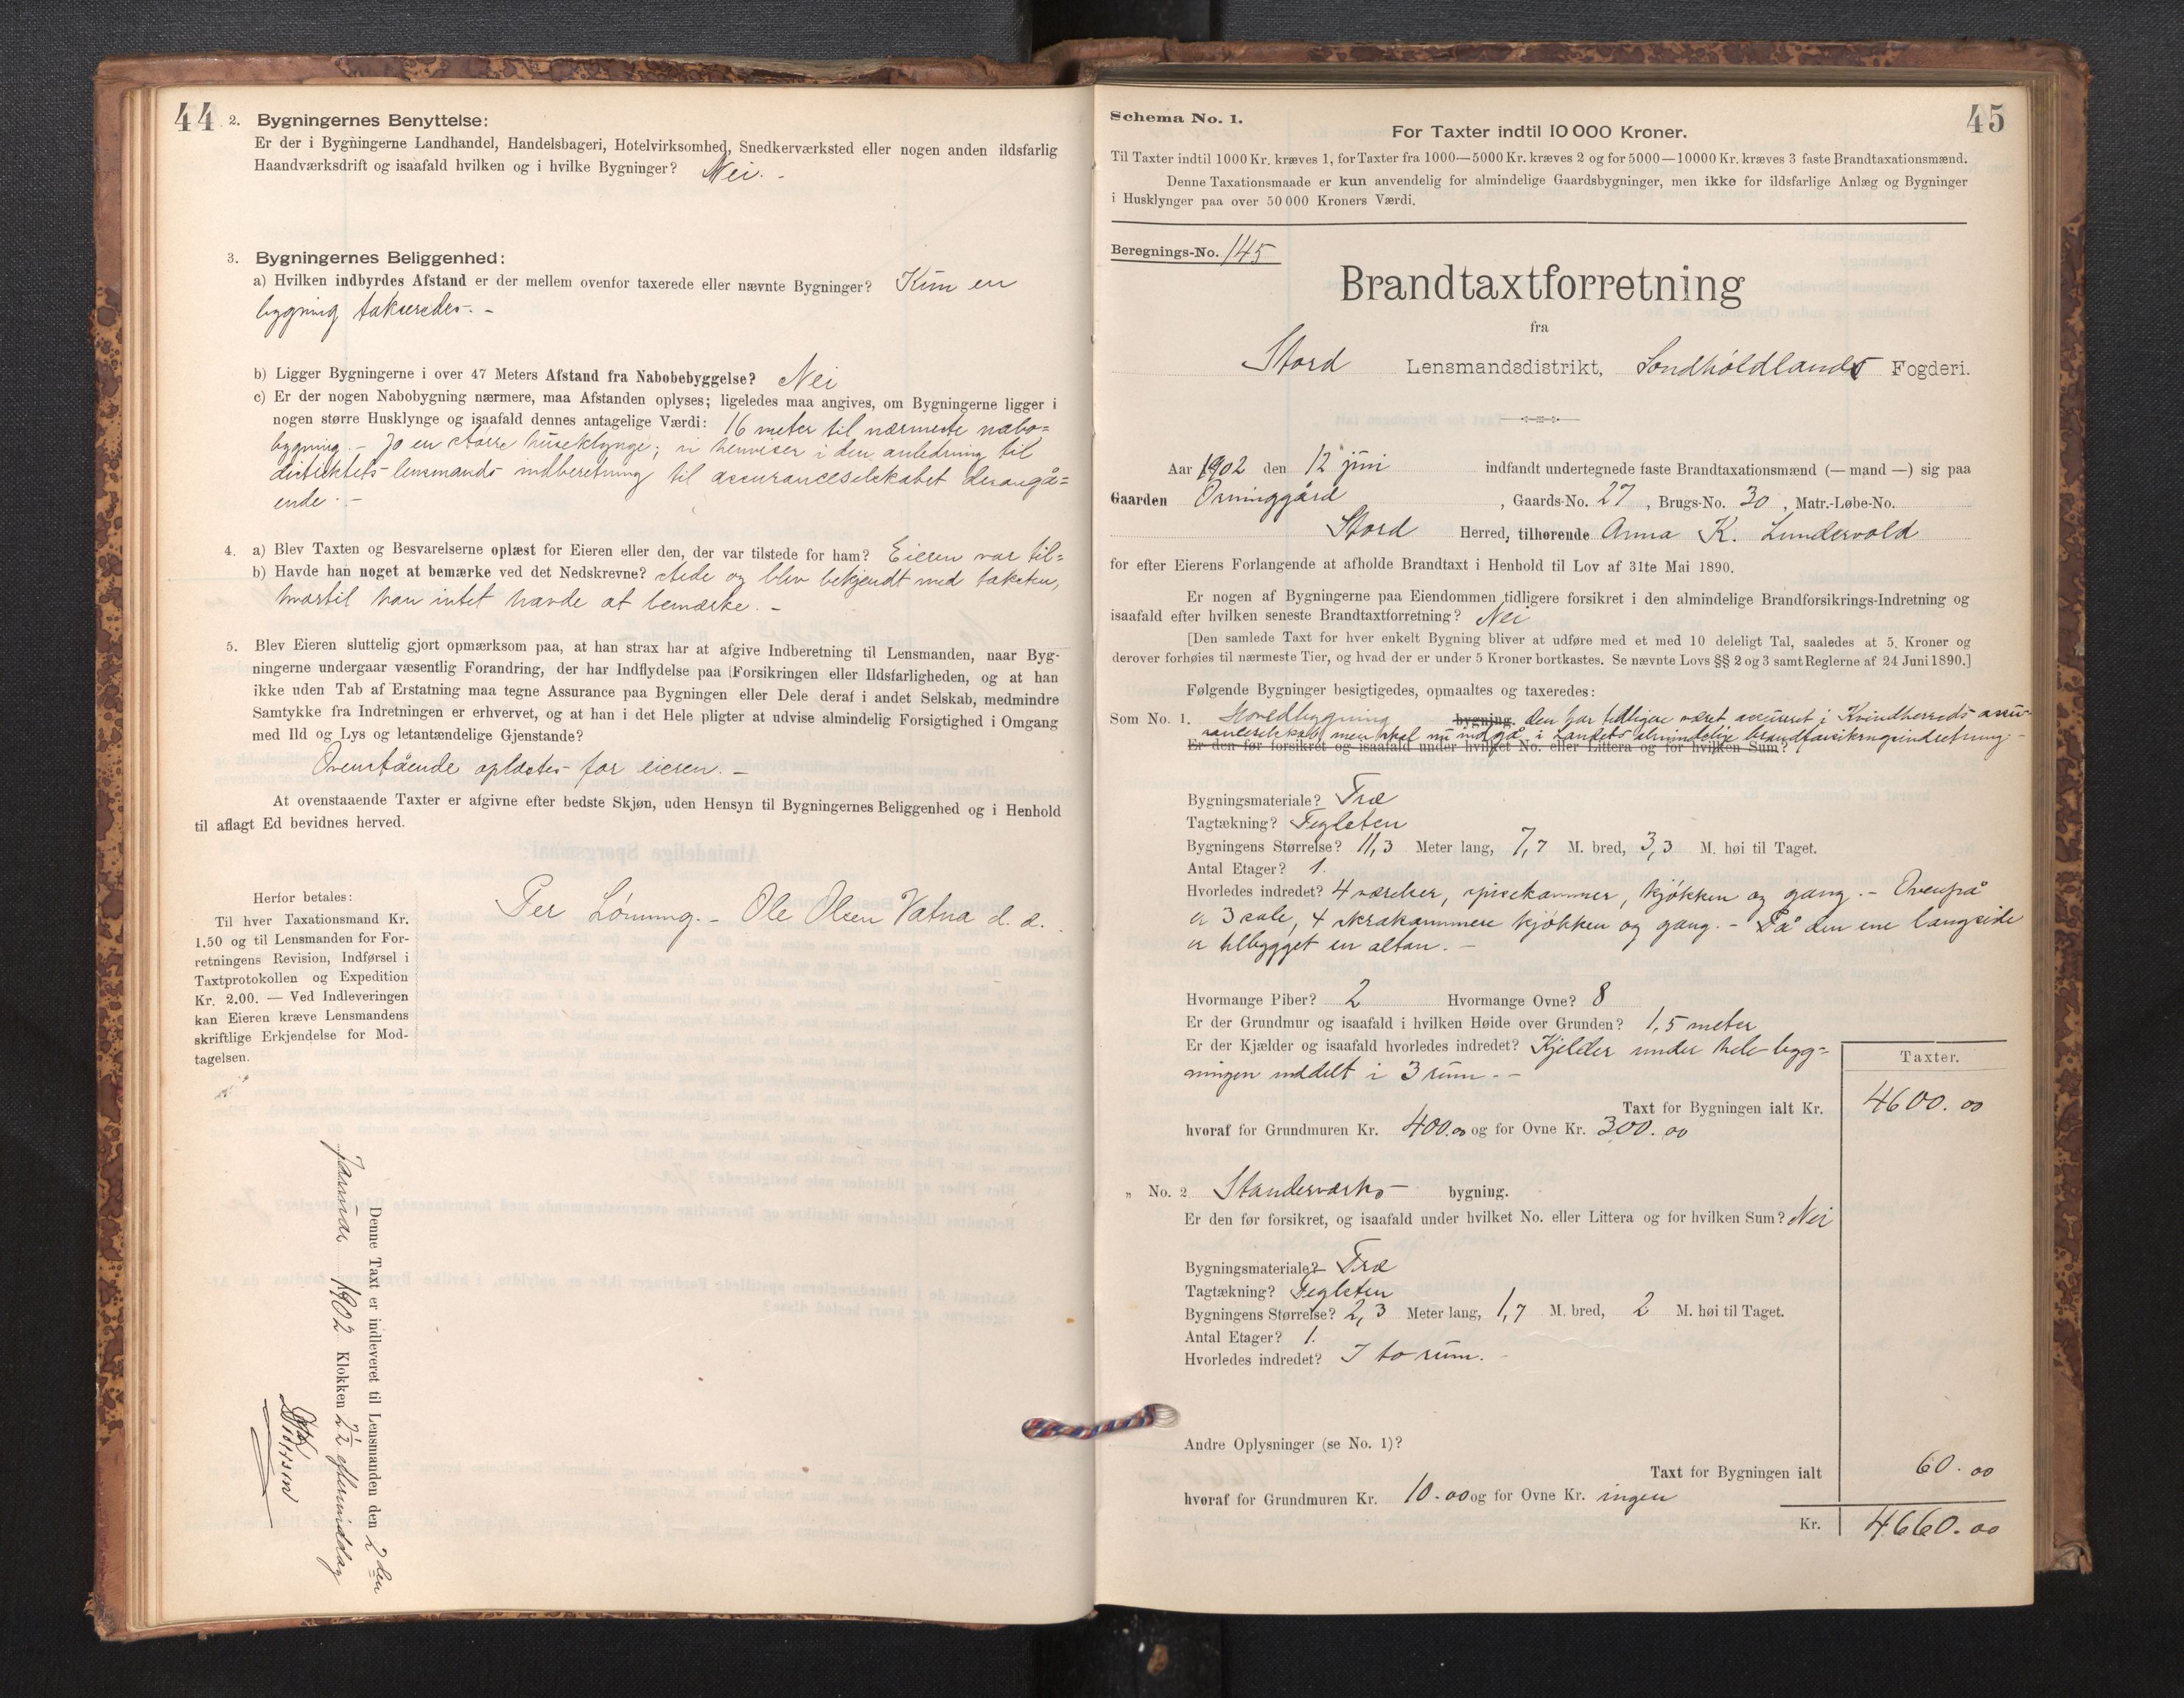 44
2. Bygningernes Benyttelse:
Er der i Bygningerne Landhandel, Handelsbageri, Hotelvirksomhed, Snedkerværksted eller nogen anden ildsfarlig
Haandværksdrift og isaafald hvilken og i hvilke Bygninger? Nei. -
3. Bygningernes Beliggenhed:
a) Hvilken indbyrdes Afstand er der mellem ovenfor taxerede eller nævnte Bygninger? Kun en
bygning takseredes. -
b) Ligger Bygningerne i over 47 Meters Afstand fra Nabobebyggelse? Nei
c) Er der nogen Nabobygning nærmere, maa Afstanden oplyses; ligeledes maa angives, om Bygningerne ligger i
nogen større Husklynge og isaafald dennes antagelige Værdi: 16 meter til nærmeste nabo=
bygning. - Jo en større huseklynge; vi henviser i den anledning til
distriktets lensmands indberetning til assuranceselskabet derangå=
ende. -
4. a) Blev Taxten og Besvarelserne oplæst for Eieren eller den, der var tilstede for ham? Eieren var til=
b) Havde han noget at bemærke ved det Nedskrevne? stede og blev bekjendt med taksten,
hvortil han intet havde at bemærke. -
5. Blev Eieren sluttelig gjort opmærksom paa, at han strax har at afgive Indberetning til Lensmanden, naar Byg-
ningerne undergaar væsentlig Forandring, der har Indflydelse paa Forsikringen eller Ildsfarligheden, og at han
ikke uden Tab af Erstatning maa tegne Assurance paa Bygningen eller Dele deraf i andet Selskab, medmindre
Samtykke fra Indretningen er erhvervet, og at han i det Hele pligter at udvise almindelig Forsigtighed i Omgang
med Ild og Lys og letantændelige Gjenstande?
Ovenstående oplæstes for eieren. -
At ovenstaaende Taxter er afgivne efter bedste Skjøn, uden Hensyn til Bygningernes Beliggenhed og i Henhold
til aflagt Ed bevidnes herved.
Per Lönning. - Ole Olsen Vatna d. æ.
Herfor betales:
Til hver Taxationsmand Kr.
1.50 og til Lensmanden for For-
retningens Revision, Indførsel i
Taxtprotokollen og Expedition
Kr. 2.00. — Ved Indleveringen
kan Eieren kræve Lensmandens
skriftlige Erkjendelse for Mod-
tagelsen.
Denne Taxt er indleveret til Lensmanden den 2den
Januar 1902 Klokken 2½ eftermiddag
45
Schema No. 1.
For Taxter indtil 10 000 Kroner.
Til Taxter indtil 1000 Kr. kræves 1, for Taxter fra 1000—5000 Kr. kræves 2 og for 5000—10000 Kr. kræves 3 faste Brandtaxationsmænd.
Denne Taxationsmaade er kun anvendelig for almindelige Gaardsbygninger, men ikke for ildsfarlige Anlæg og Bygninger
i Husklynger paa over 50 000 Kroners Værdi.
Beregnings-No. 145
Brandtaxtforretning
fra
Stord Lensmandsdistrikt, Söndhôldlands Fogderi.
Aar 1902 den 12 juni indfandt undertegnede faste Brandtaxationsmænd (— mand —) sig paa
Gaarden Orninggård, Gaards-No. 27, Brugs-No. 30, Matr.-Løbe-No.
Stord Herred, tilhørende Anna K. Lundervold
for efter Eierens Forlangende at afholde Brandtaxt i Henhold til Lov af 31te Mai 1890.
Er nogen af Bygningerne paa Eiendommen tidligere forsikret i den almindelige Brandforsikrings-Indretning og
isaafald efter hvilken seneste Brandtaxtforretning? Nei
[Den samlede Taxt for hver enkelt Bygning bliver at udføre med et med 10 deleligt Tal, saaledes at 5 Kroner og
derover forhøies til nærmeste Tier, og hvad der er under 5 Kroner bortkastes. Se nævnte Lovs §§ 2 og 3 samt Reglerne af 24 Juni 1890.]
Følgende Bygninger besigtigedes, opmaaltes og taxeredes:
Som No. 1. Hovedbygning bygning. Den har tidligere været assureret i Kvindherreds assu-
ranceselskab, men skal nu indgå i Landets almindelige brandforsikringsindretning. -
Er den før forsikret og isaafald under hvilket No. eller Littera og for hvilken Sum?
Bygningsmateriale? Træ
Tagtækning? Teglsten
Bygningens Størrelse? 11,3 Meter lang, 7,7 M. bred, 3,3 M. høi til Taget.
Antal Etager? 1.
Hvorledes indredet? 4 værelser, spisekammer, kjøkken og gang. - Ovenpå
er 3 sale, 4 skråkammere kjøkken og gang. - På den ene langside
er tilbygget en altan. -
Hvormange Piber? 2 Hvormange Ovne? 8
Er der Grundmur og isaafald i hvilken Høide over Grunden? 1,5 meter
Er der Kjælder og isaafald hvorledes indredet? Kjelder under hele byg=
ningen inddelt i 3 rum. -
Taxter.
Taxt for Bygningen ialt Kr. 4600. 00
hvoraf for Grundmuren Kr. 400.00 og for Ovne Kr. 300. 00
„ No. 2 Standerværks bygning.
Er den før forsikret, og isaafald under hvilket No. eller Littera og for hvilken Sum? Nei
Bygningsmateriale? Træ
Tagtækning? Teglsten
Bygningens Størrelse? 2,3 Meter lang, 1,7 M. bred, 2 M. høi til Taget.
Antal Etager? 1.
Hvorledes indredet? I to rum.
Andre Oplysninger (se No. 1)?
Taxt for Bygningen ialt 60. 00
hvoraf for Grundmuren Kr. 10.00 og for Ovne Kr. ingen
Kr. 4660. 00